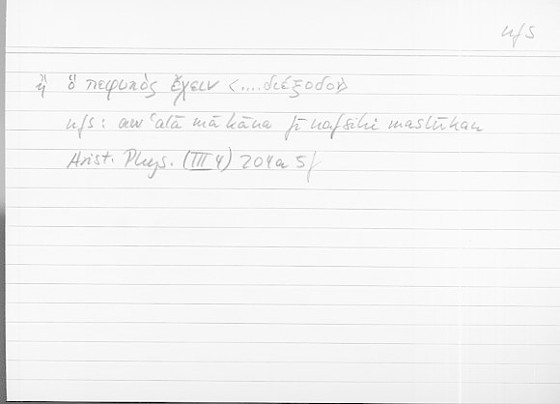 nfs
ἢ ὃ πεφυκὸς ἔχειν <....διέξοδον>
nfs: aw ʿalā mā kāna fī nafsihi maslūkan
Arist. Phys. (III 4) 204a 5f